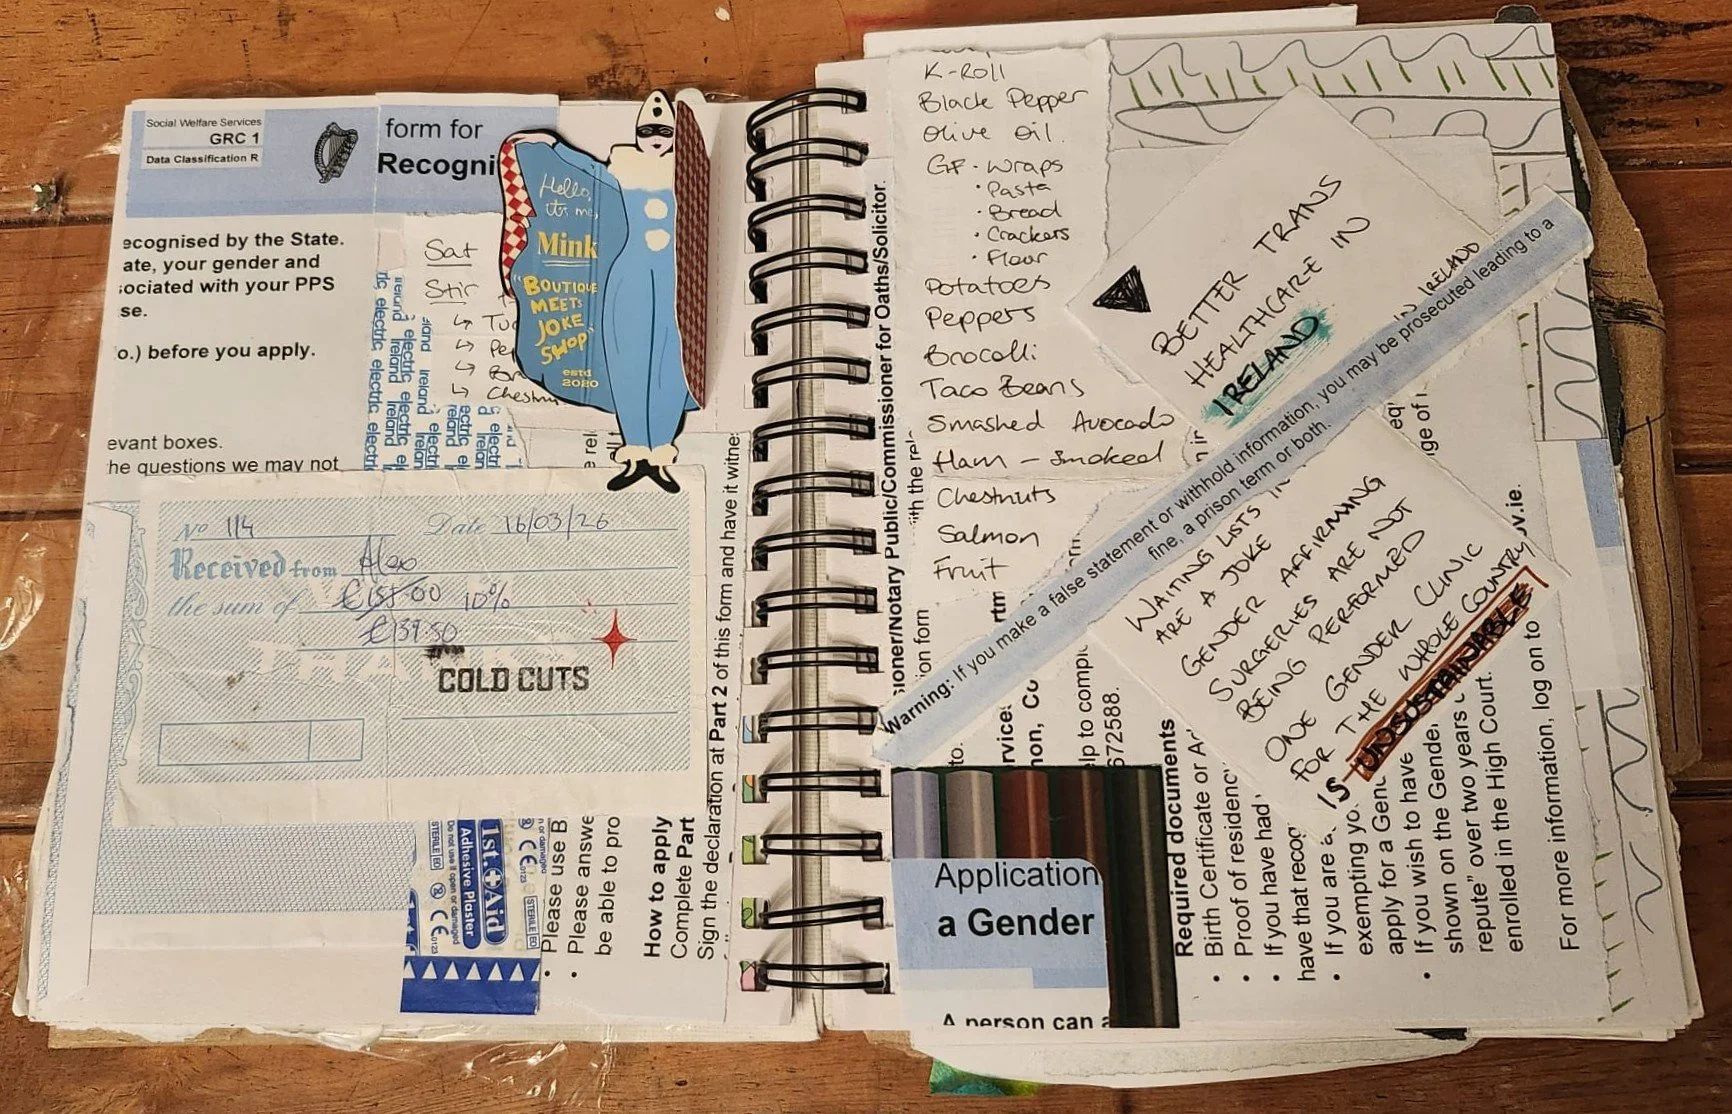 Social Welfare Services
GRC 1
Data Classification R
form for
Recogni
ecognised by the State.
ate, your gender and
sociated with your PPS
se.
o.) before you apply.
evant boxes.
he questions we may not
Sat
Stir
↳ Tu
↳ Pe
↳ Br
↳ Chestnu
electric Ireland
Hello,
it's me,
Mink
"BOUTIQUE
MEETS
JOKE
SHOP"
estd
2020
No 114 Date 16/03/26
Received from Alex
the sum of €155.00 10%
€139.50
THA
COLD CUTS
1st Aid
Adhesive Plaster
Do not use if open or damaged
STERILE EO
CE 0123
• Please use B
• Please answe
be able to pro
How to apply
Complete Part
Sign the declaration at Part 2 of this form and have it witne
K-Roll
Black Pepper
Olive Oil
GF · Wraps
· Pasta
· Bread
· Crackers
· Flour
Potatoes
Peppers
Brocolli
Taco Beans
Smashed Avocado
Ham - Smoked
Chestnuts
Salmon
Fruit
sioner/Notary Public/Commissioner for Oaths/Solicitor.
with the rele
ion form
BETTER TRANS
HEALTHCARE IN
IRELAND
Warning: If you make a false statement or withhold information, you may be prosecuted leading to a
fine, a prison term or both.
WAITING LISTS IN IRELAND
ARE A JOKE
GENDER AFFIRMING
SURGERIES ARE NOT
BEING PERFORMED
ONE GENDER CLINIC
FOR THE WHOLE COUNTRY
IS UNSUSTAINABLE
ov.ie.
elp to comple
672588.
Application
a Gender
A person can a
Required documents
• Birth Certificate or Ad
• Proof of residency
• If you have had
have that recog
• If you are a
exempting yo
apply for a Gend
• If you wish to have
shown on the Gender
repute" over two years
enrolled in the High Court.
For more information, log on to